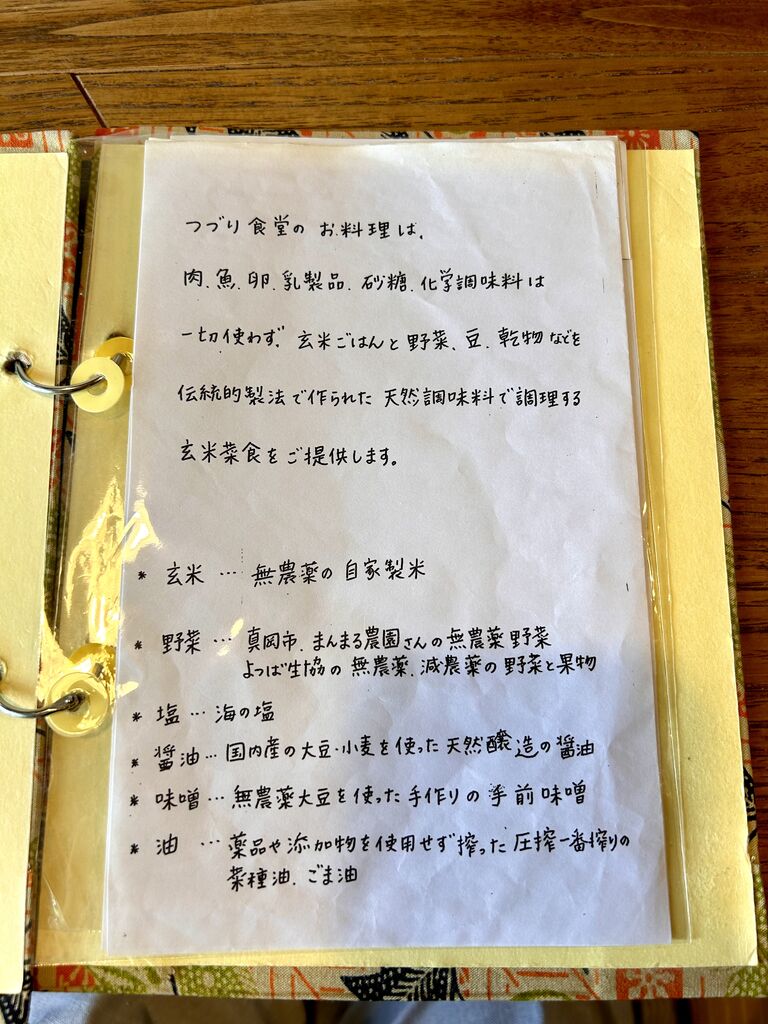 つづり食堂の お料理は、
肉、魚、卵、乳製品、砂糖、化学調味料は
一切使わず、玄米ごはんと野菜、豆、乾物などを
伝統的製法で作られた 天然調味料で調理する
玄米菜食をご提供します。
* 玄米 … 無農薬の自家製米
* 野菜 … 真岡市、まんまる農園さんの無農薬野菜
よつば生協の 無農薬、減農薬の野菜と果物
* 塩 … 海の塩
* 醤油 … 国内産の大豆・小麦を使った 天然醸造の醤油
* 味噌 … 無農薬大豆を使った 手作りの手前味噌
* 油 … 薬品や添加物を使用せず搾った 圧搾一番搾りの
菜種油、ごま油